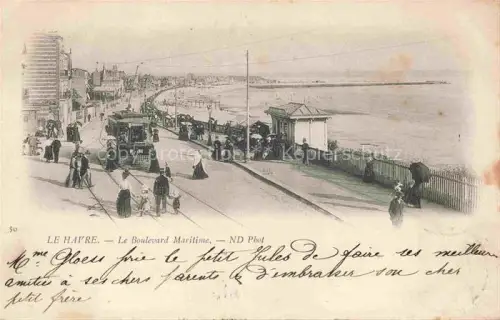 50
LE HAVRE. — Le Boulevard Maritime. — ND Phot
Mme Gloess prie le petit Jules de faire ses meilleur
amitiés à ses chers parents & d'embraser son cher
petit frère